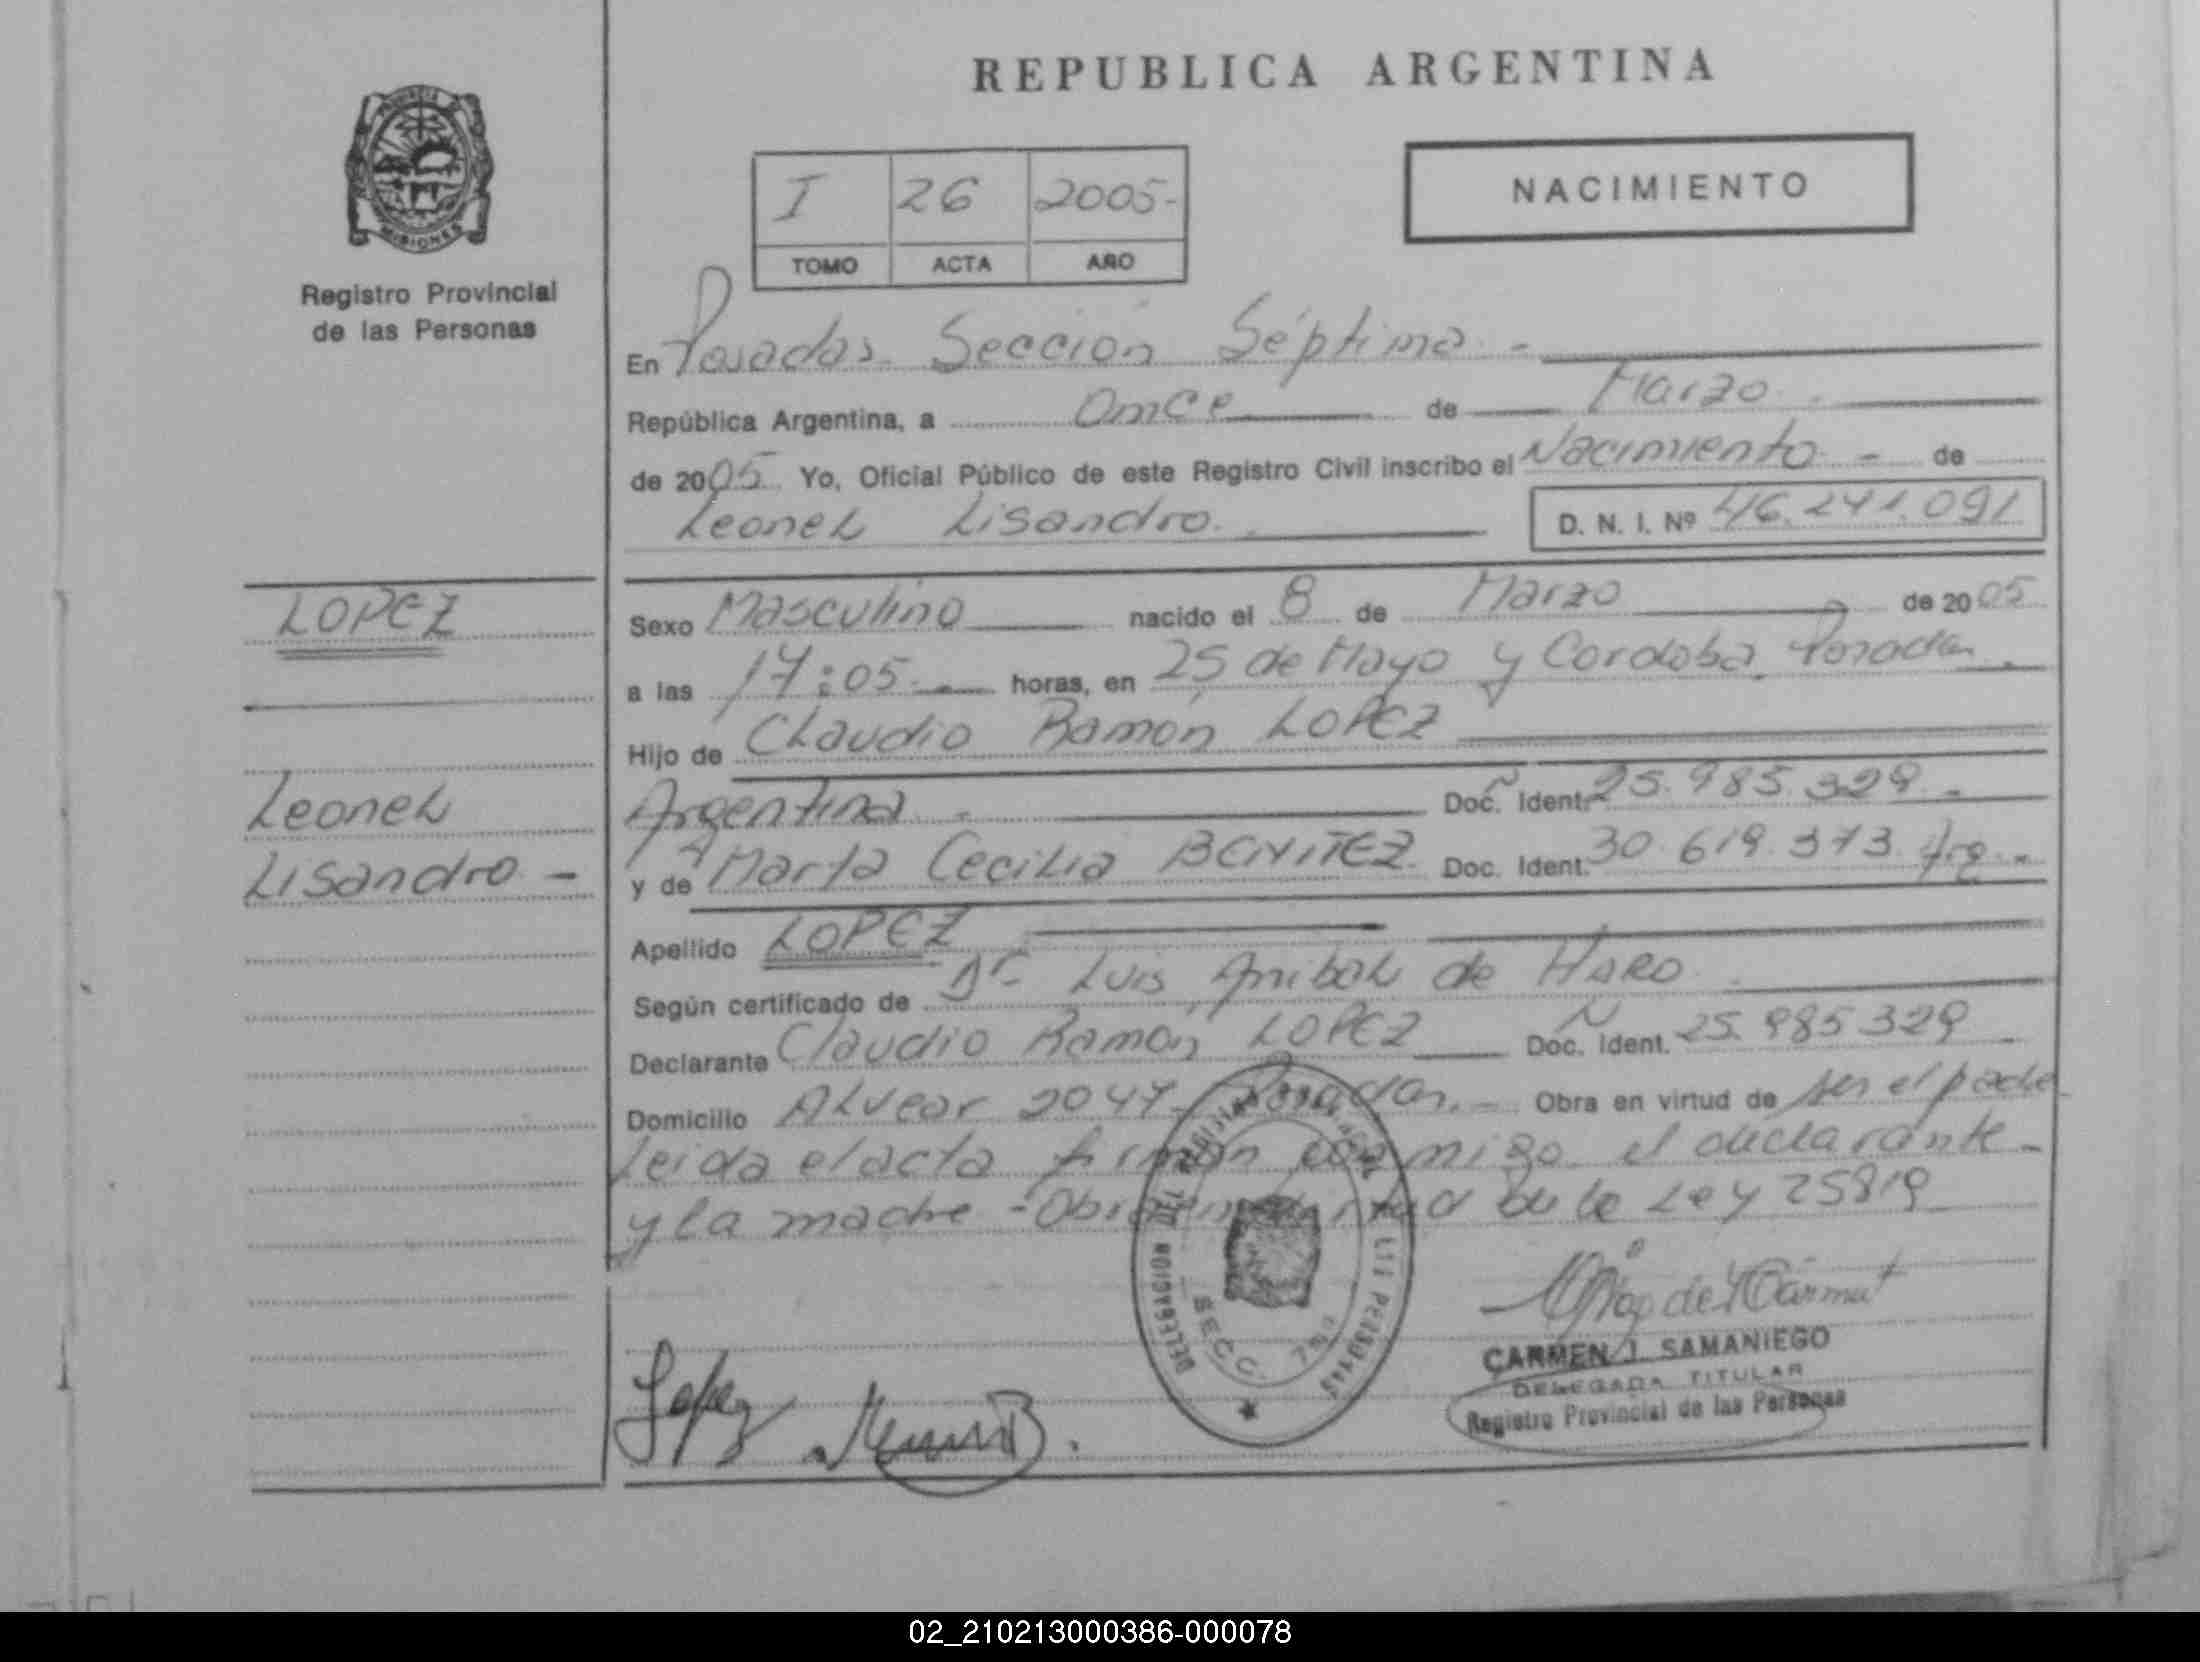 REPUBLICA ARGENTINA
PROVINCIA DE
MISIONES
Registro Provincial
de las Personas
I 26 2005-
TOMO ACTA AÑO
NACIMIENTO
En Posadas Sección Séptima. -
República Argentina, a Once de Marzo.
de 2005 Yo, Oficial Público de este Registro Civil inscribo el Nacimiento - de
Leonel Lisandro. D. N. I. Nº 46.241.091
LOPEZ
Leonel
Lisandro -
Sexo Masculino nacido el 8 de Marzo de 2005
a las 17:05.- horas, en 25 de Mayo y Cordoba, Posadas.
Hijo de Claudio Ramón LOPEZ
Argentina. Doc. Ident. 25.985.329.-
y de Marta Cecilia BENITEZ. Doc. Ident. 30.619.373. Arg.-
Apellido LOPEZ
Según certificado de Dr. Luis Anibal de HARO.
Declarante Claudio Ramón LOPEZ Doc. Ident. 25.985329
Domicilio Alvear 2047 Posadas.- Obra en virtud de ser el padre
Leida el acta firman conmigo el declarante
y la madre - Obra en virtud de la Ley 25819
DELEGACION DEL REGISTRO PROVINCIAL DE LAS PERSONAS
SECC. 7ma
Lopez
CARMEN J. SAMANIEGO
DELEGADA TITULAR
Registro Provincial de las Personas
02_210213000386-000078